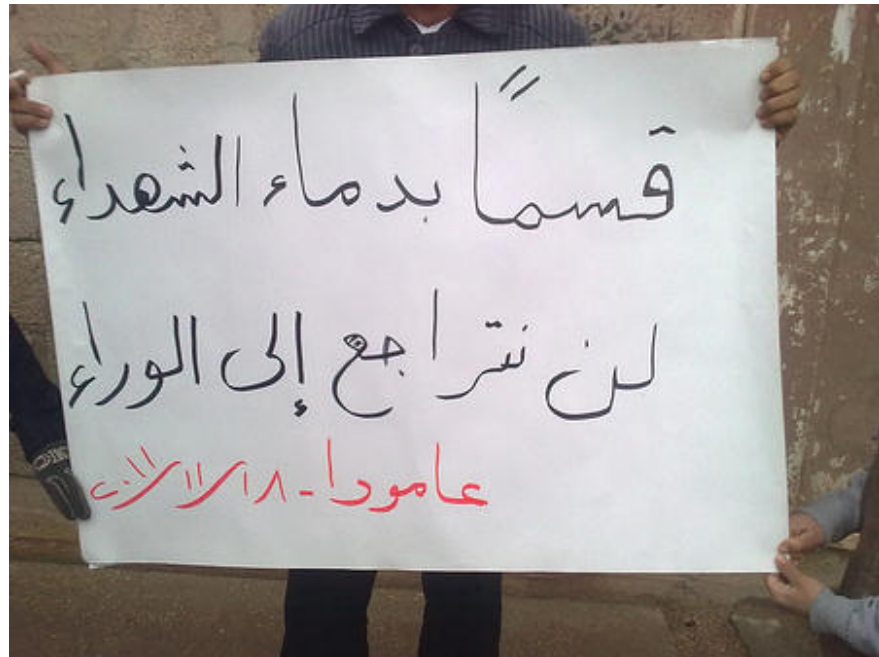 قسماً بدماء الشهداء
لن نتراجع إلى الوراء
عامودا - ١٨/١١/٢٠١١